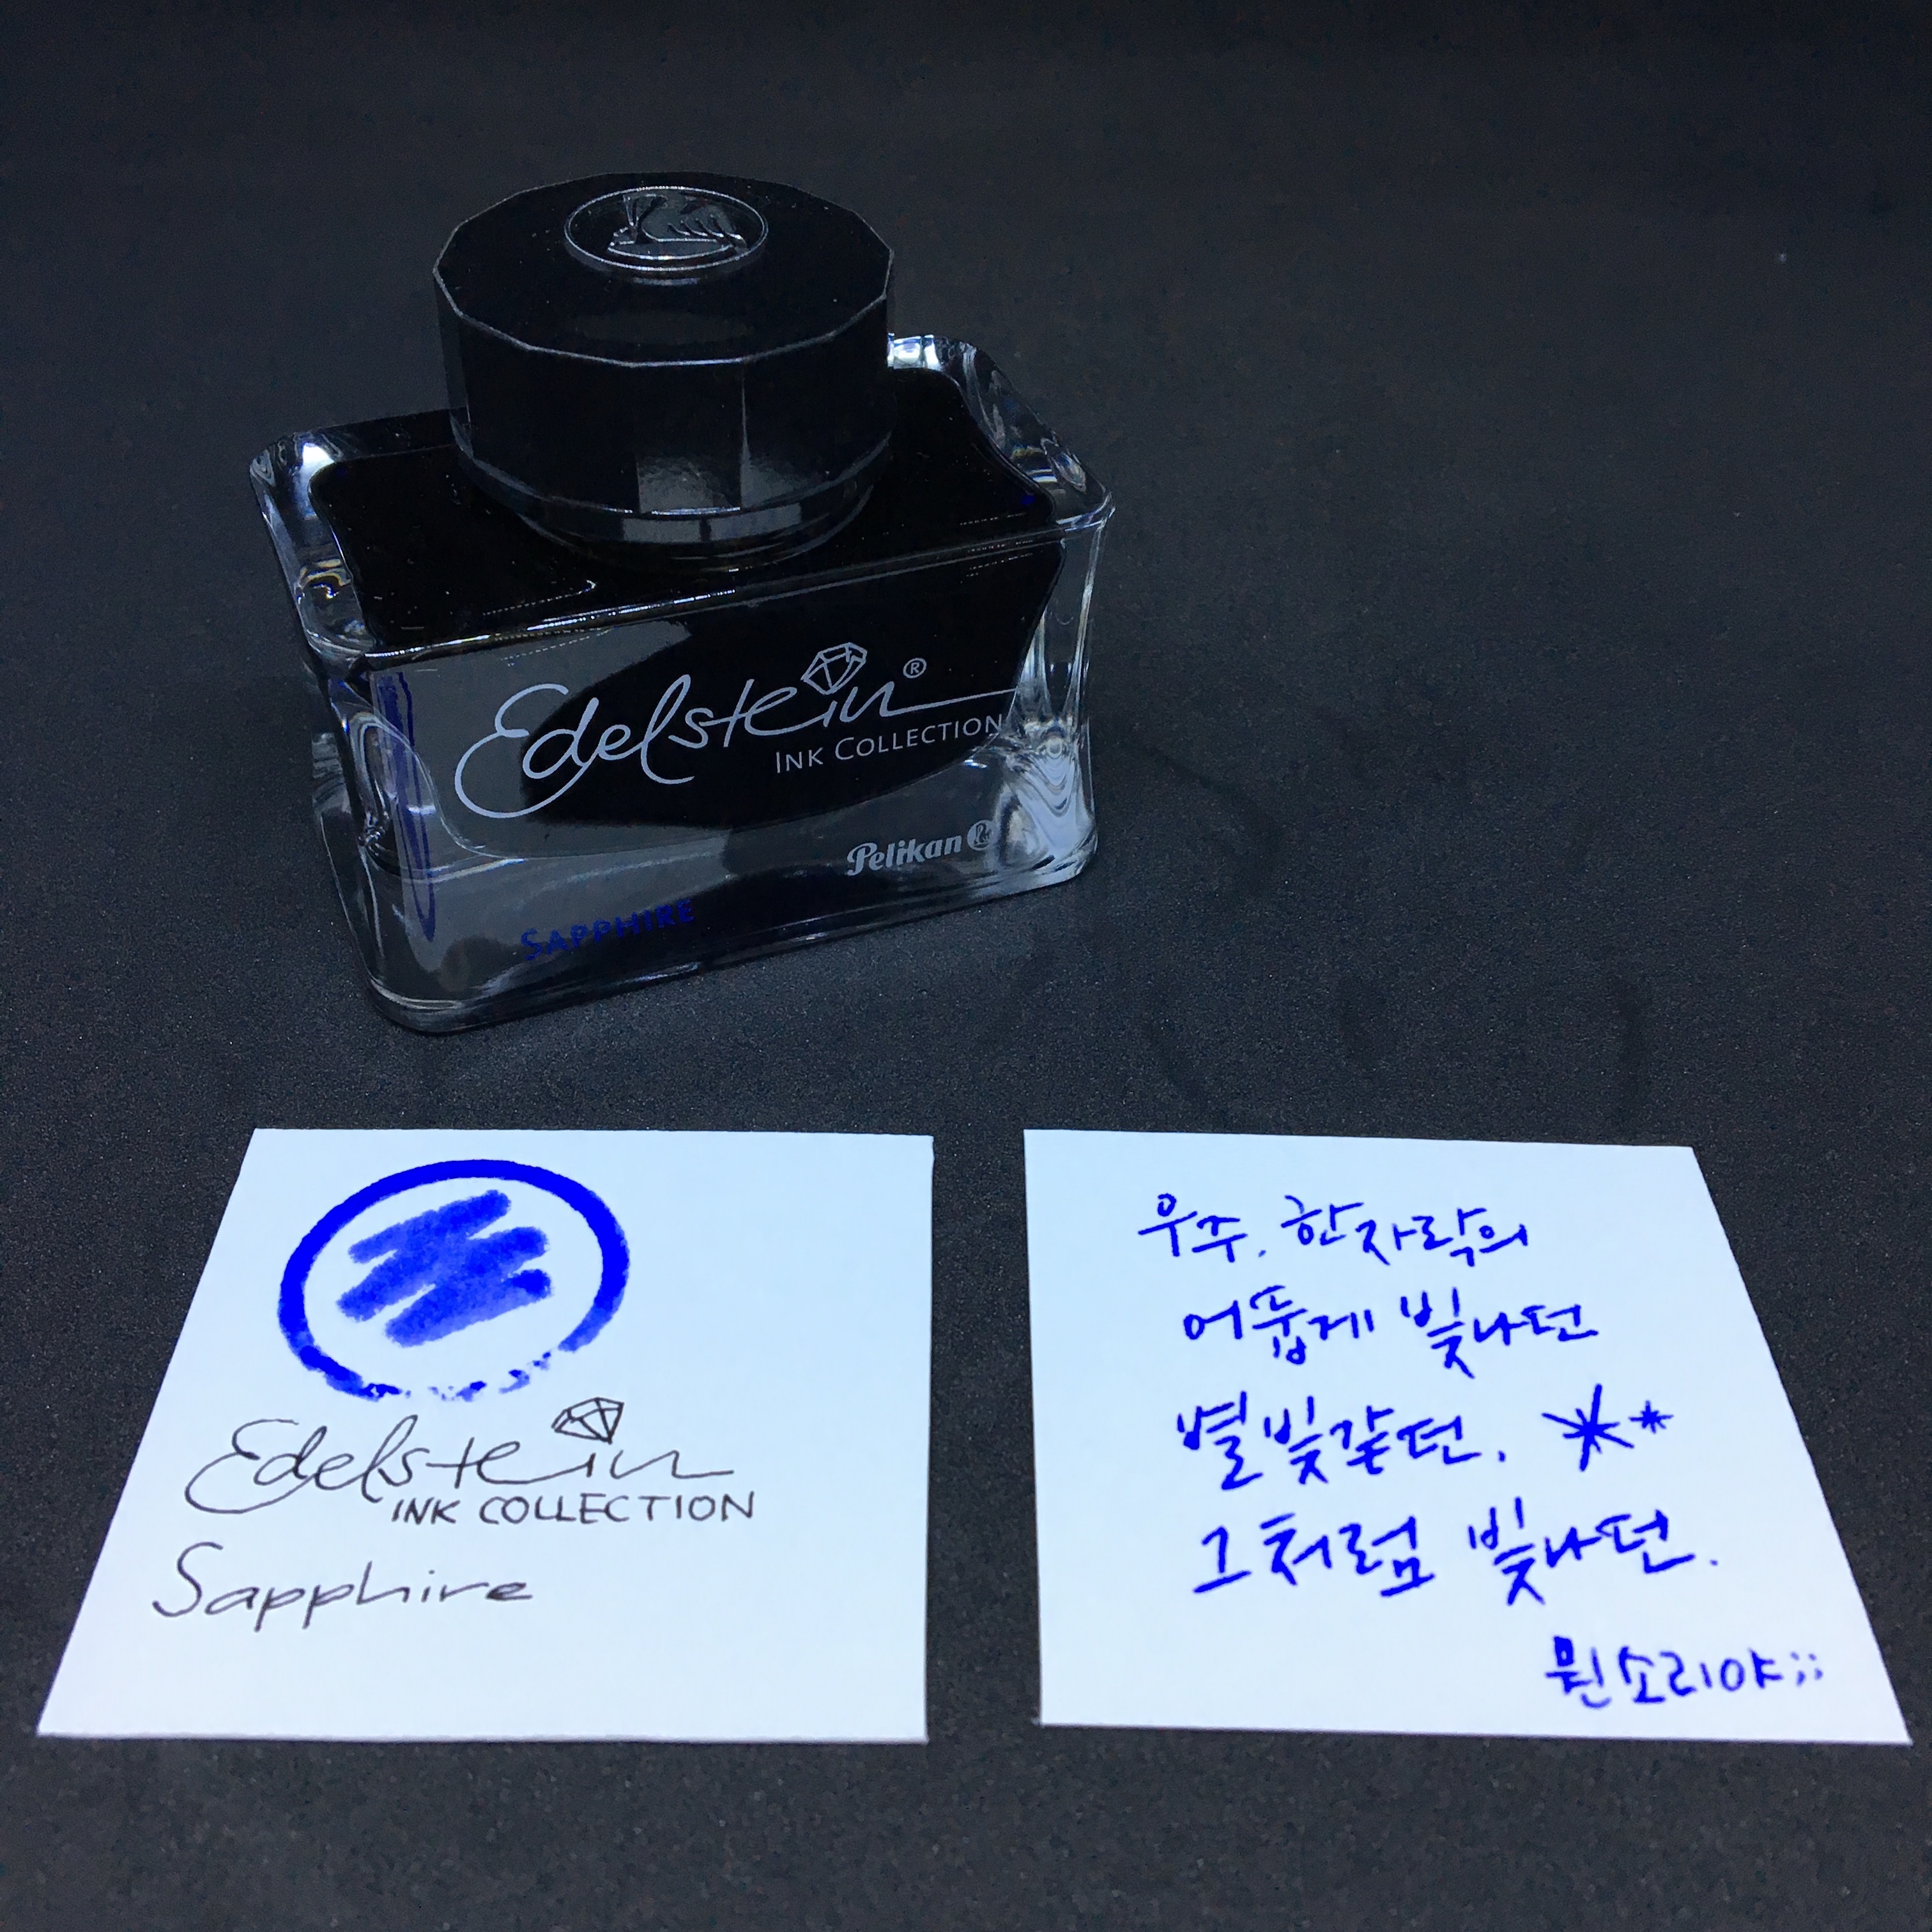 Edelstein®
INK COLLECTION
Pelikan
SAPPHIRE
Edelstein
INK COLLECTION
Sapphire
우주, 한자락의
어둡게 빛나던
별빛같던,
그처럼 빛나던.
뭔소리야;;